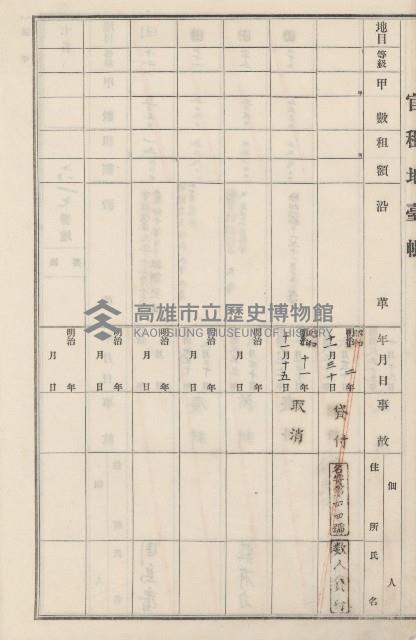 官租地臺帳
地目
等級
甲數
租額
沿革
年月日
事故
佃人
住所氏名
昭和
明治 二年
十一月三十日
貸付
數人公有
昭和
明治 十一年
十一月十五日
取消
明治 年
月 日
明治 年
月 日
明治 年
月 日
明治 年
月 日
明治 年
月 日
高雄市立歷史博物館
KAOHSIUNG MUSEUM OF HISTORY